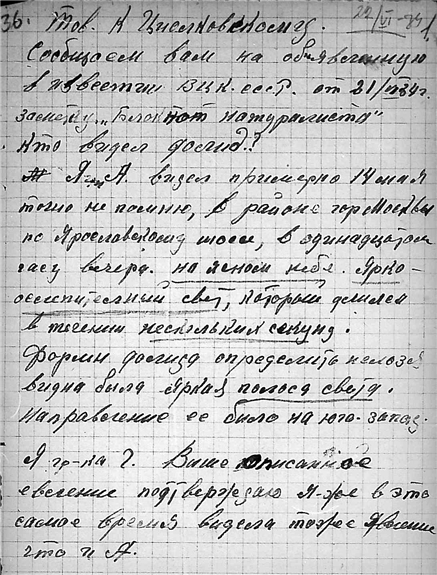 36. Тов. К Циелковскому. 22/VI-34 г.
Сообщаем вам на объявленную
в известии ВЦК. ссср. от 21/VI 34 г.
заметку „Блокнот натуралиста"
Кто видел болид?
Я А. видел примерно 14 мая
точно не помню, в районе гор Москвы
по Ярославскому шоссе, в одинадцатом
часу вечера. на ясном небе. Ярко-
ослепительный свет, который длился
в течении нескольких секунд.
Формы болида определить нелозя
видна была яркая полоса света.
Направление ее было на юго-запад.
Я гр-ка Г. Выше описанное
евеление подтверждаю я-же в это
самое время видела тоже явление
что и А.